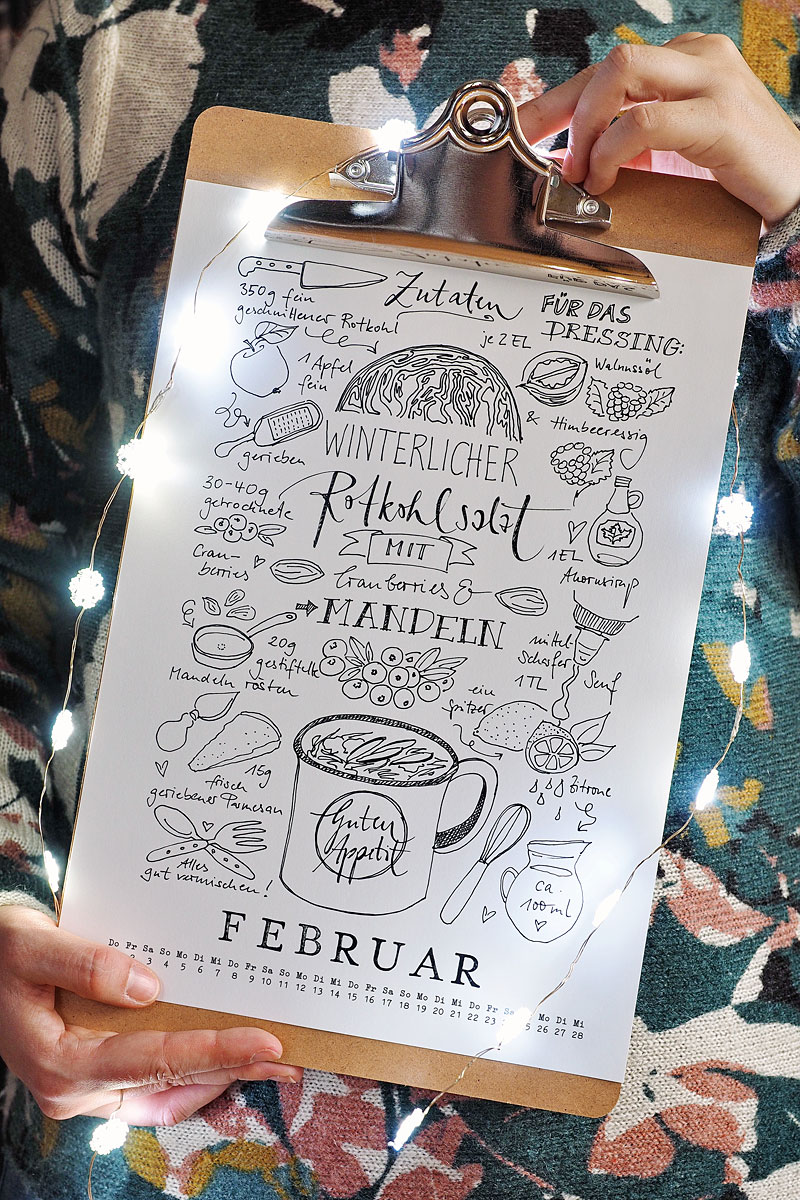 Zutaten
350g fein
geschnittener Rotkohl
1 Apfel
fein
gerieben
30-40g
getrocknete
Cran-
berries
20g
gestiftelte
Mandeln rösten
15g
frisch
geriebener Parmesan
Alles
gut vermischen!
WINTERLICHER
Rotkohlsalat
MIT
Cranberries &
MANDELN
FÜR DAS
DRESSING:
je 2 EL
Walnussöl
& Himbeeressig
1EL
Ahornsirup
mittel-
scharfer
1TL Senf
ein
spritzer
Zitrone
ca.
100ml
Guten
Appetit
FEBRUAR
Do Fr Sa So Mo Di Mi Do Fr Sa So Mo Di Mi Do Fr Sa So Mo Di Mi Do Fr Sa Mo Di Mi
2 3 4 5 6 7 8 9 10 11 12 13 14 15 16 17 18 19 20 21 22 23 25 26 27 28